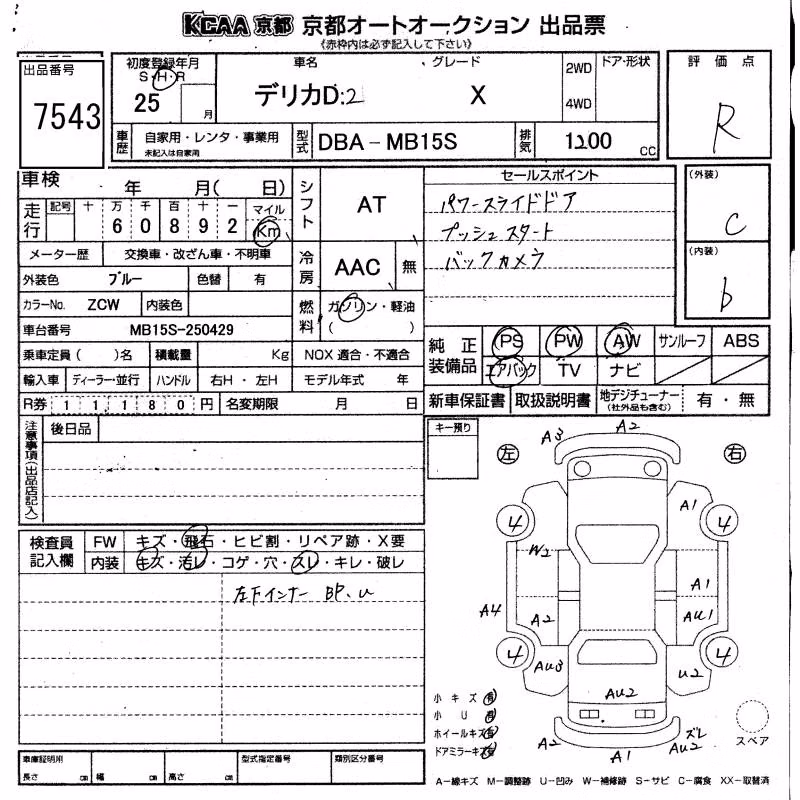 KCAA 京都 京都オートオークション 出品票
《赤枠内は必ず記入して下さい》
出品番号
7543
初度登録年月
S・H・R
25 月
車名 グレード
デリカD:2 X
2WD
4WD
ドア・形状
評価点
R
車歴
自家用・レンタ・事業用
未記入は自家用
型式
DBA-MB15S
排気
1200 CC
車検 年 月( 日)
走行
記号 十 万 千 百 十 一 マイル
6 0 8 9 2 Km
メーター歴 交換車・改ざん車・不明車
外装色 ブルー 色替 有
カラーNo. ZCW 内装色
車台番号 MB15S-250429
乗車定員( )名 積載量 Kg NOX 適合・不適合
輸入車 ディーラー・並行 ハンドル 右H・左H モデル年式 年
R券 1 1 1 8 0 円 名変期限 月 日
シフト AT
冷房 AAC 無
燃料 ガソリン・軽油
( )
セールスポイント
パワースライドドア
プッシュスタート
バックカメラ
(外装)
C
(内装)
b
純正装備品
PS PW AW サンルーフ ABS
エアバック TV ナビ
新車保証書 取扱説明書 地デジチューナー
(社外品も含む) 有・無
注意事項(出品店記入)
後日品
キー預り
検査員記入欄
FW キズ・飛石・ヒビ割・リペア跡・X要
内装 キズ・汚レ・コゲ・穴・スレ・キレ・破レ
左下インナー BP、U
左 右
A3 A2
A1
4 4
W2
A1
A4 A2 AU1
4 4
AU3 U2
AU2
小キズ 有
小U 有
ホイールキズ 有
ドアミラーキズ 有
A2 A1 AU2 ズレ
スペア
車庫証明用
長さ cm 幅 cm 高さ cm
型式指定番号
類別区分番号
A-線キズ M-調整跡 U-凹み W-補修跡 S-サビ C-腐食 XX-取替済